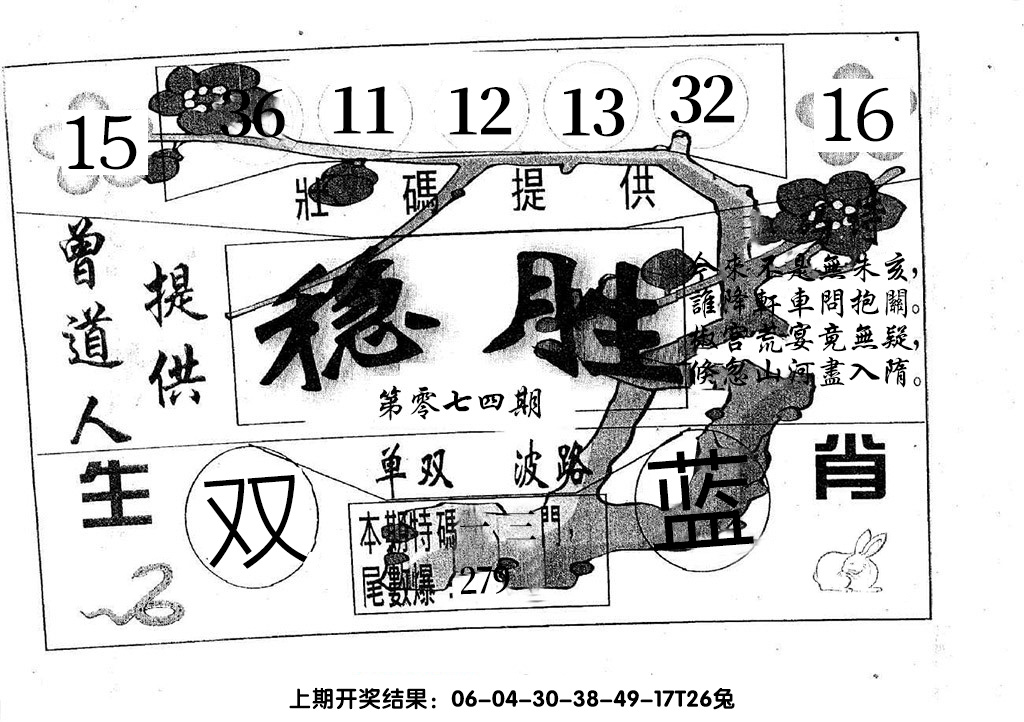 15 36 11 12 13 32 16
壯 碼 提 供
曾道人
提供
今來不是無朱亥,
誰降軒車問抱關。
客荒宴竟無疑,
倏忽山河盡入隋。
稳胜
第零七四期
单双 波路
生 肖
双
蓝
本期特碼一、三門,
尾數爆:279
上期开奖结果:06-04-30-38-49-17T26兔